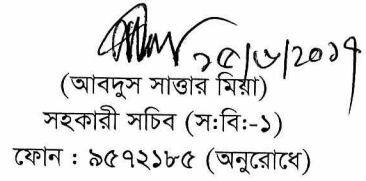 ১৫/৬/২০১৭
(আবদুস সাত্তার মিয়া)
সহকারী সচিব (স:বি:-১)
ফোন : ৯৫৭২১৮৫ (অনুরোধে)